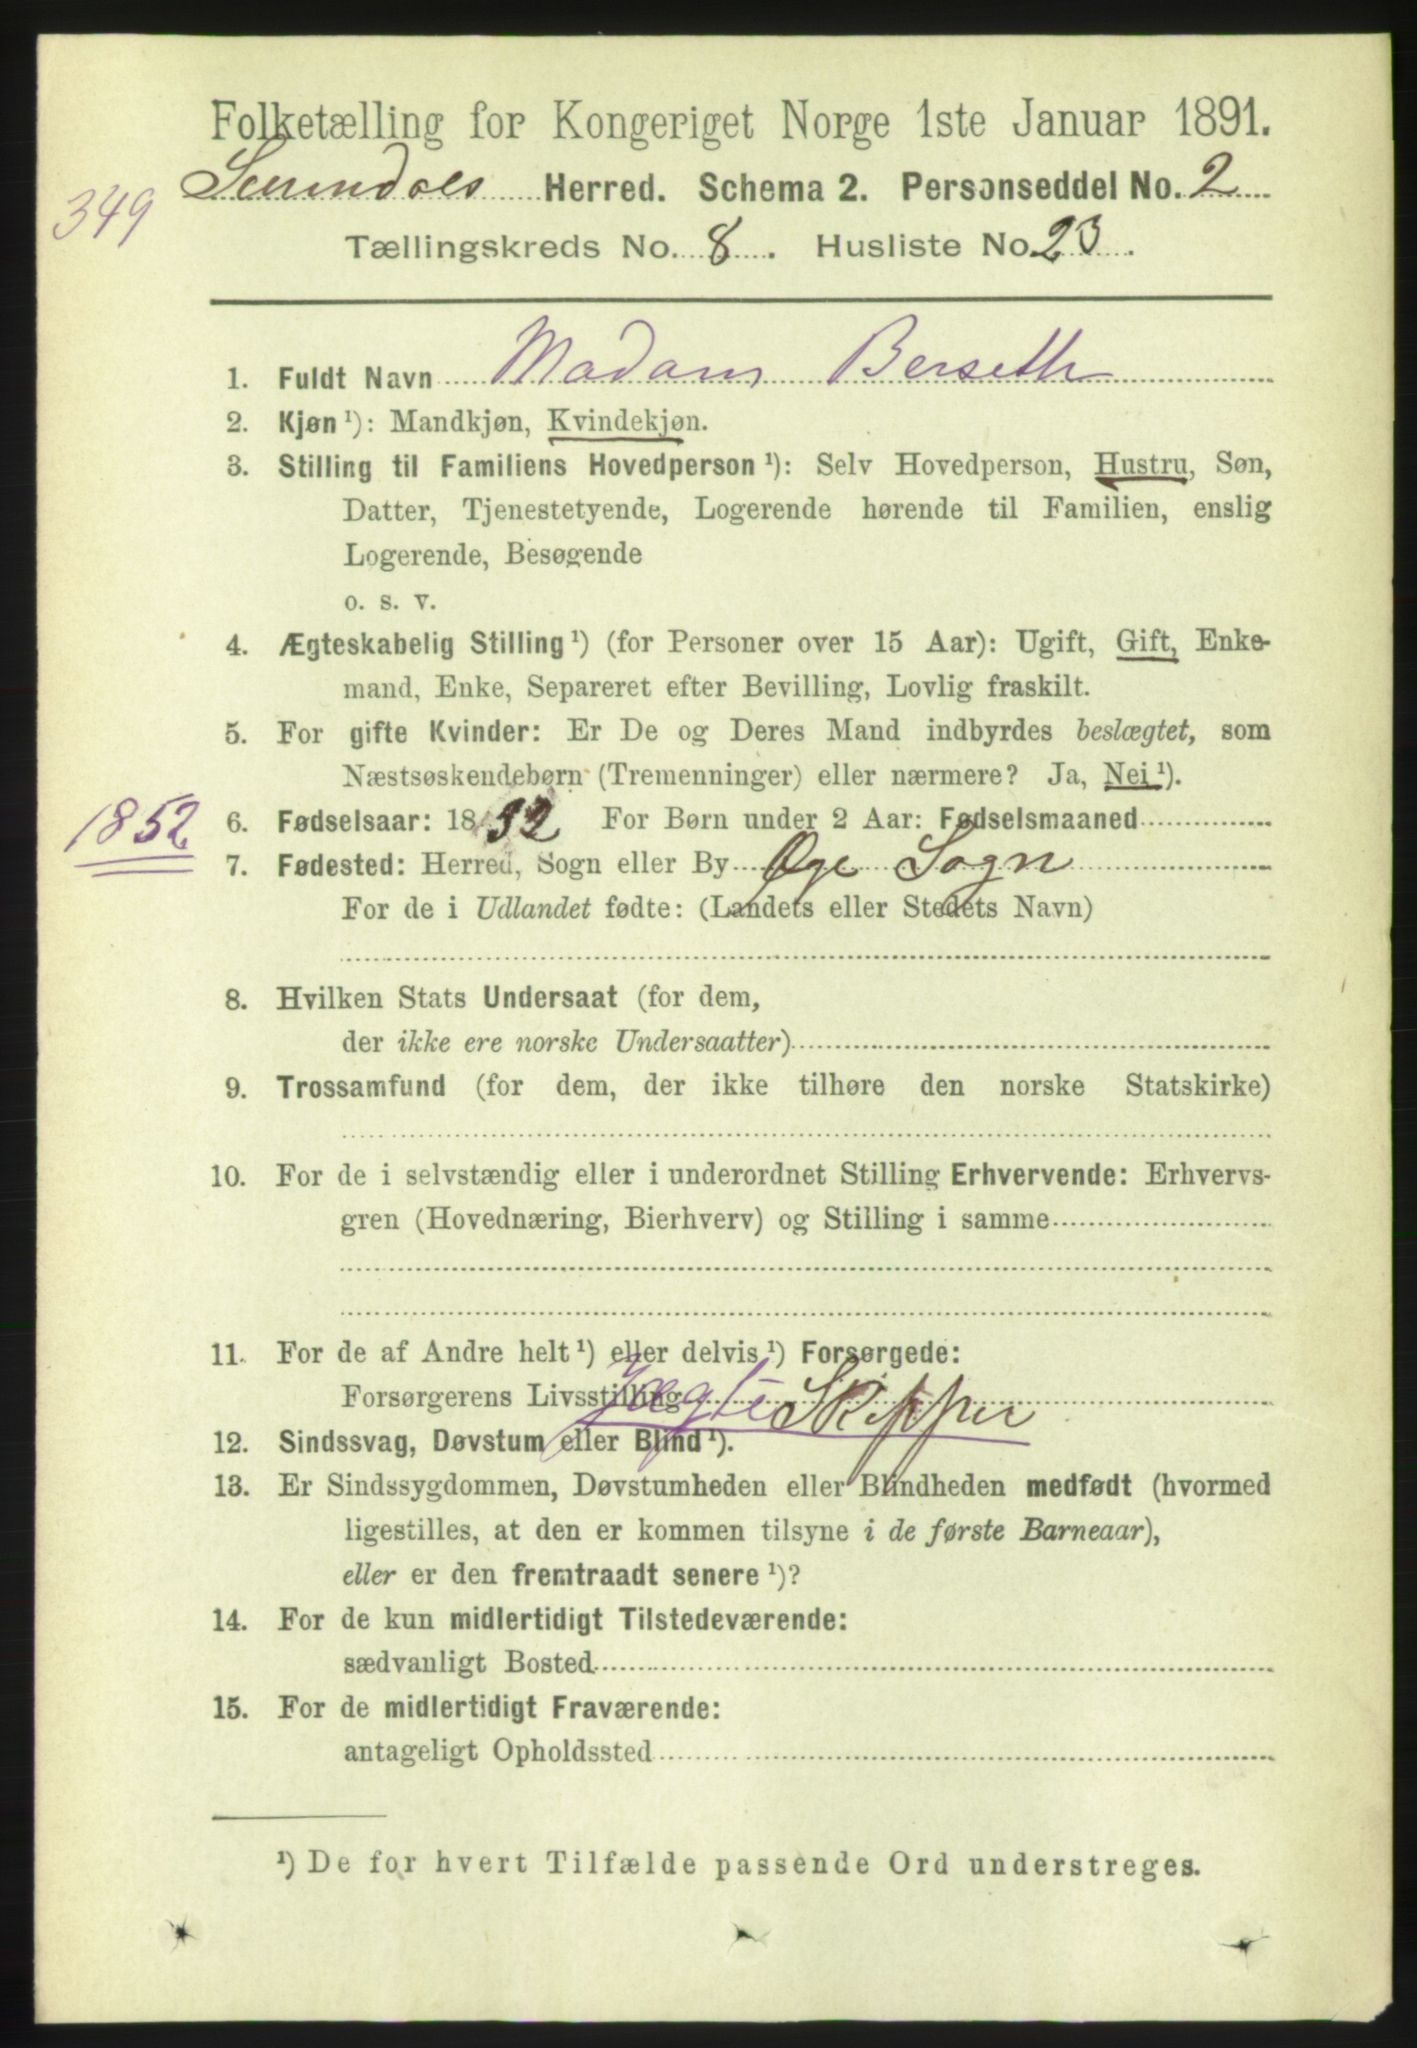 Folketælling for Kongeriget Norge 1ste Januar 1891.
349
Surendals Herred. Schema 2. Personseddel No. 2
Tællingskreds No. 8. Husliste No. 23.
1. Fuldt Navn Madam Berseth
2. Kjøn ¹): Mandkjøn, Kvindekjøn.
3. Stilling til Familiens Hovedperson ¹): Selv Hovedperson, Hustru, Søn,
Datter, Tjenestetyende, Logerende hørende til Familien, enslig
Logerende, Besøgende
o. s. v.
4. Ægteskabelig Stilling ¹) (for Personer over 15 Aar): Ugift, Gift, Enke-
mand, Enke, Separeret efter Bevilling, Lovlig fraskilt.
5. For gifte Kvinder: Er De og Deres Mand indbyrdes beslægtet, som
Næstsøskendebørn (Tremenninger) eller nærmere? Ja, Nei ¹).
1852
6. Fødselsaar: 1852 For Børn under 2 Aar: Fødselsmaaned
7. Fødested: Herred, Sogn eller By Øye Sogn
For de i Udlandet fødte: (Landets eller Stedets Navn)
8. Hvilken Stats Undersaat (for dem,
der ikke ere norske Undersaatter)
9. Trossamfund (for dem, der ikke tilhøre den norske Statskirke)
10. For de i selvstændig eller i underordnet Stilling Erhvervende: Erhvervs-
gren (Hovednæring, Bierhverv) og Stilling i samme
11. For de af Andre helt ¹) eller delvis ¹) Forsørgede:
Forsørgerens Livsstilling Jægte Skipper
12. Sindssvag, Døvstum eller Blind ¹).
13. Er Sindssygdommen, Døvstumheden eller Blindheden medfødt (hvormed
ligestilles, at den er kommen tilsyne i de første Barneaar),
eller er den fremtraadt senere ¹)?
14. For de kun midlertidigt Tilstedeværende:
sædvanligt Bosted
15. For de midlertidigt Fraværende:
antageligt Opholdssted
¹) De for hvert Tilfælde passende Ord understreges.